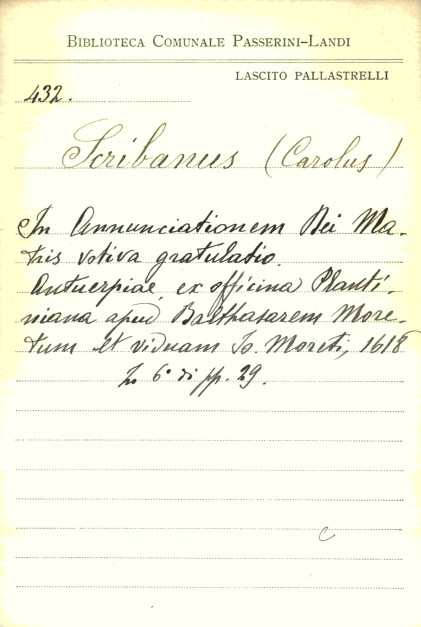 BIBLIOTECA COMUNALE PASSERINI-LANDI
LASCITO PALLASTRELLI
432.
Scribanus (Carolus)
In Annunciationem Dei Ma-
tris votiva gratulatio.
Antuerpiae, ex officina Planti-
niana apud Balthasarem More-
tum et viduam Io. Moreti, 1618
In 6° di pp. 29.
c